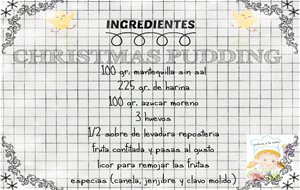 INGREDIENTES
CHRISTMAS PUDDING
100 gr. mantequilla sin sal
225 gr. de harina
100 gr. azucar moreno
3 huevos
1/2 sobre de levadura reposteria
fruta confitada y pasas al gusto
licor para remojar las frutas
especias (canela, jenjibre y clavo molido)